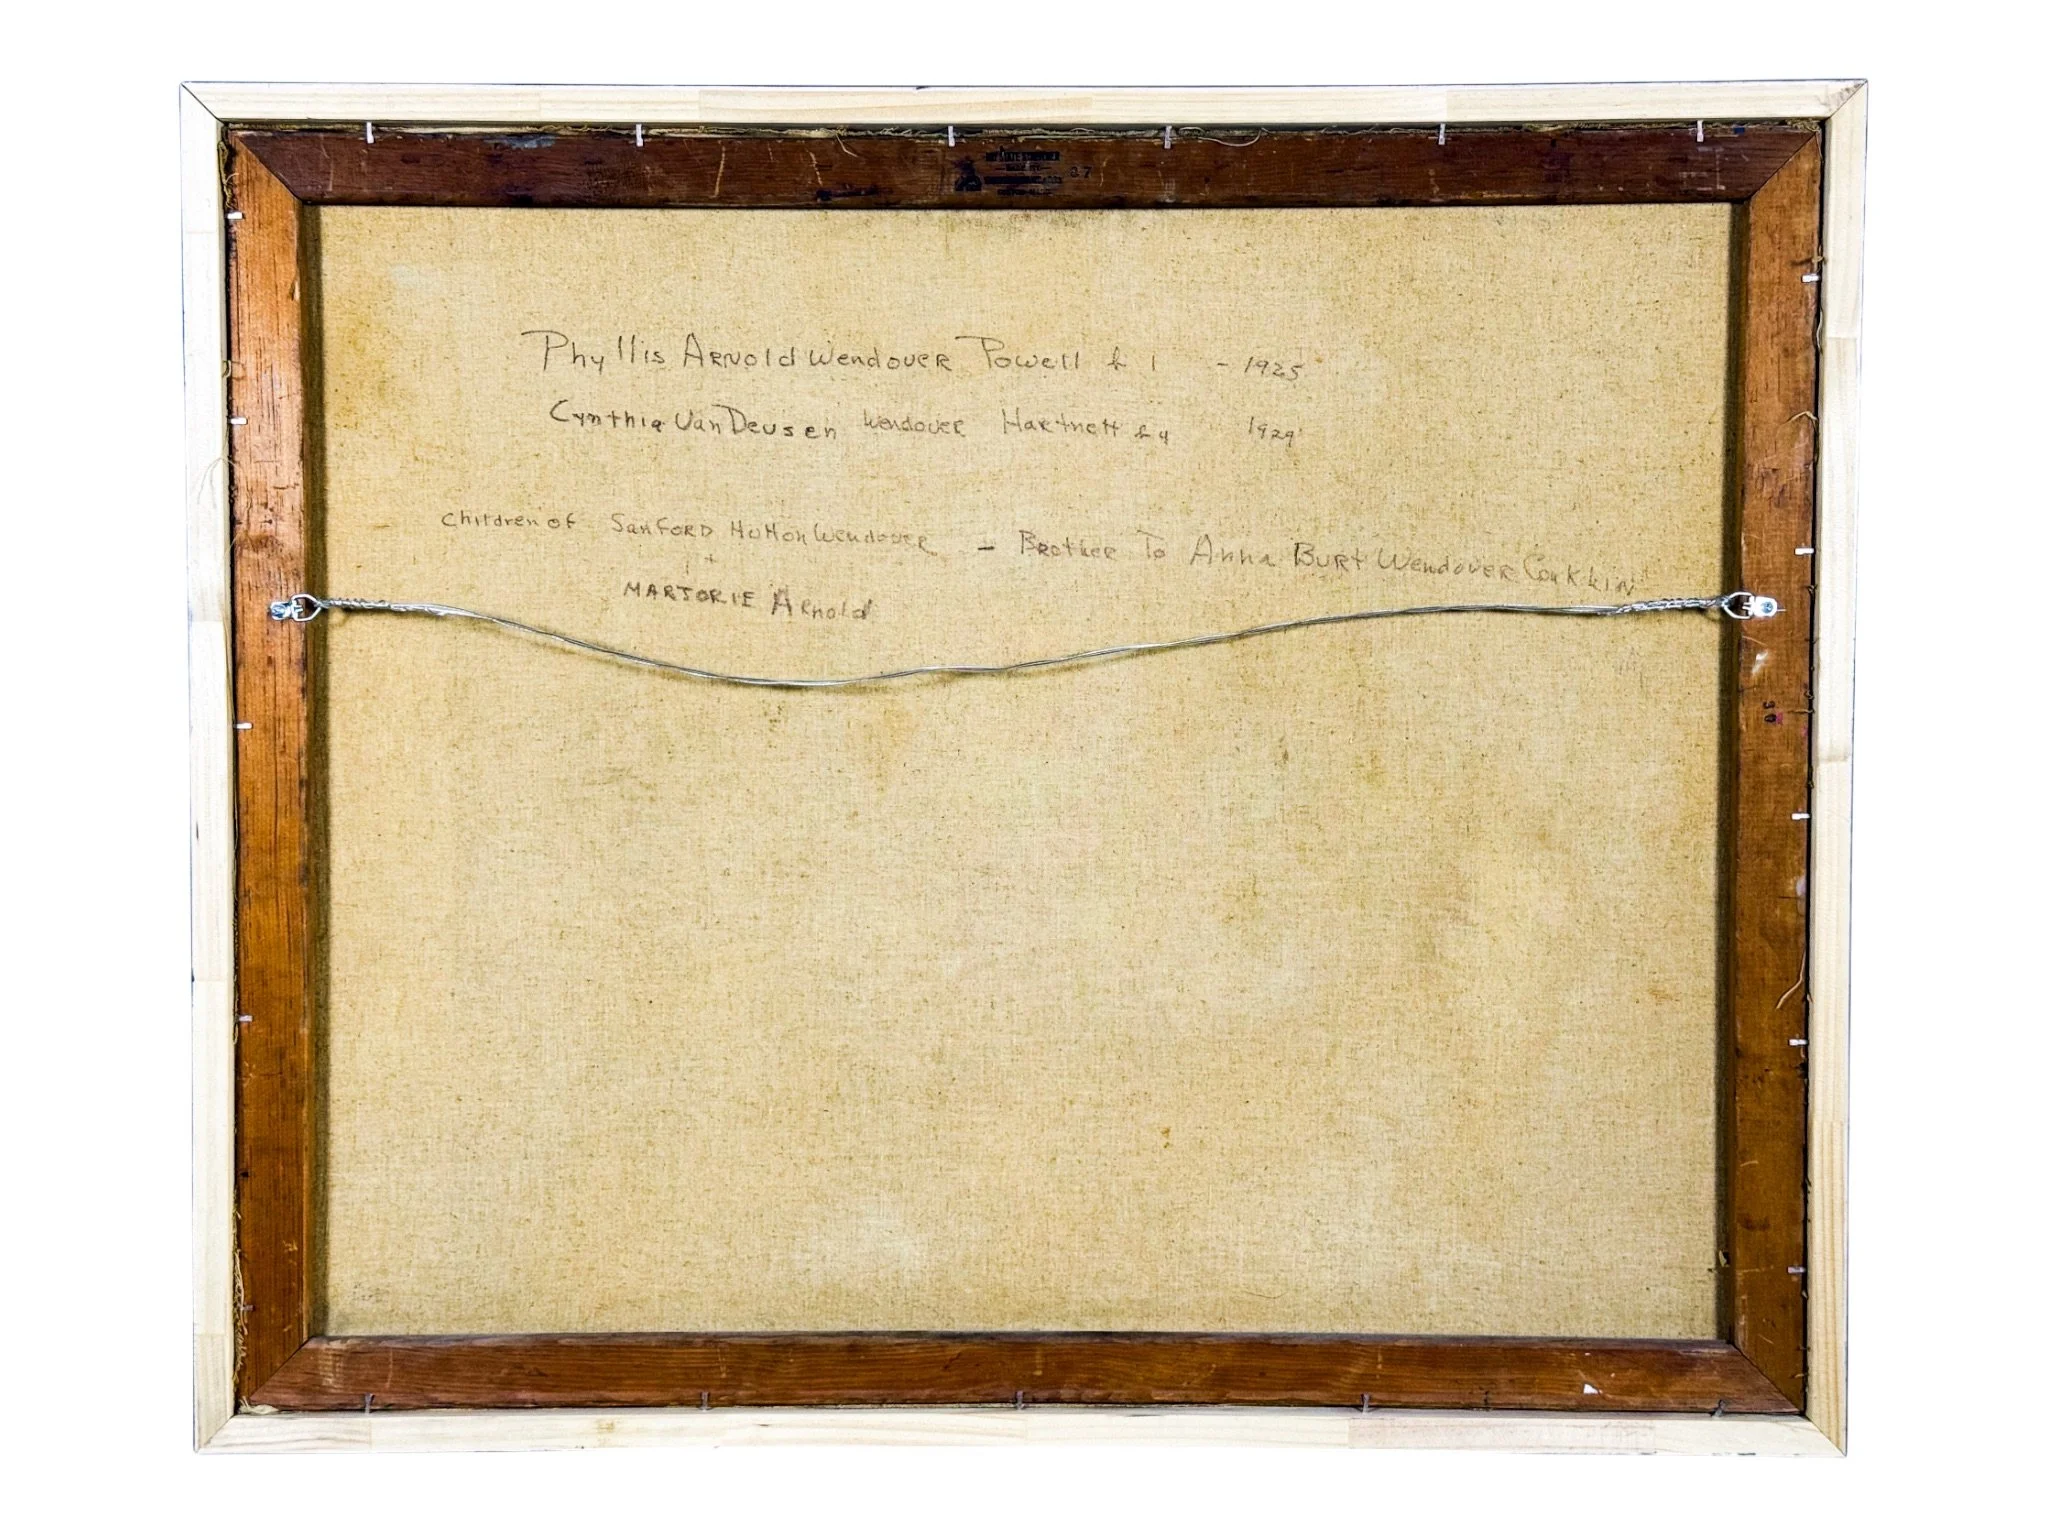 37
Phyllis Arnold Wendover Powell & 1 - 1925
Cynthia Van Deusen Wendover Hartnett & 4 1929
Children of Sanford Hutton Wendover - Brother To Anna Burt Wendover Conklin
+
MARJORIE Arnold
30